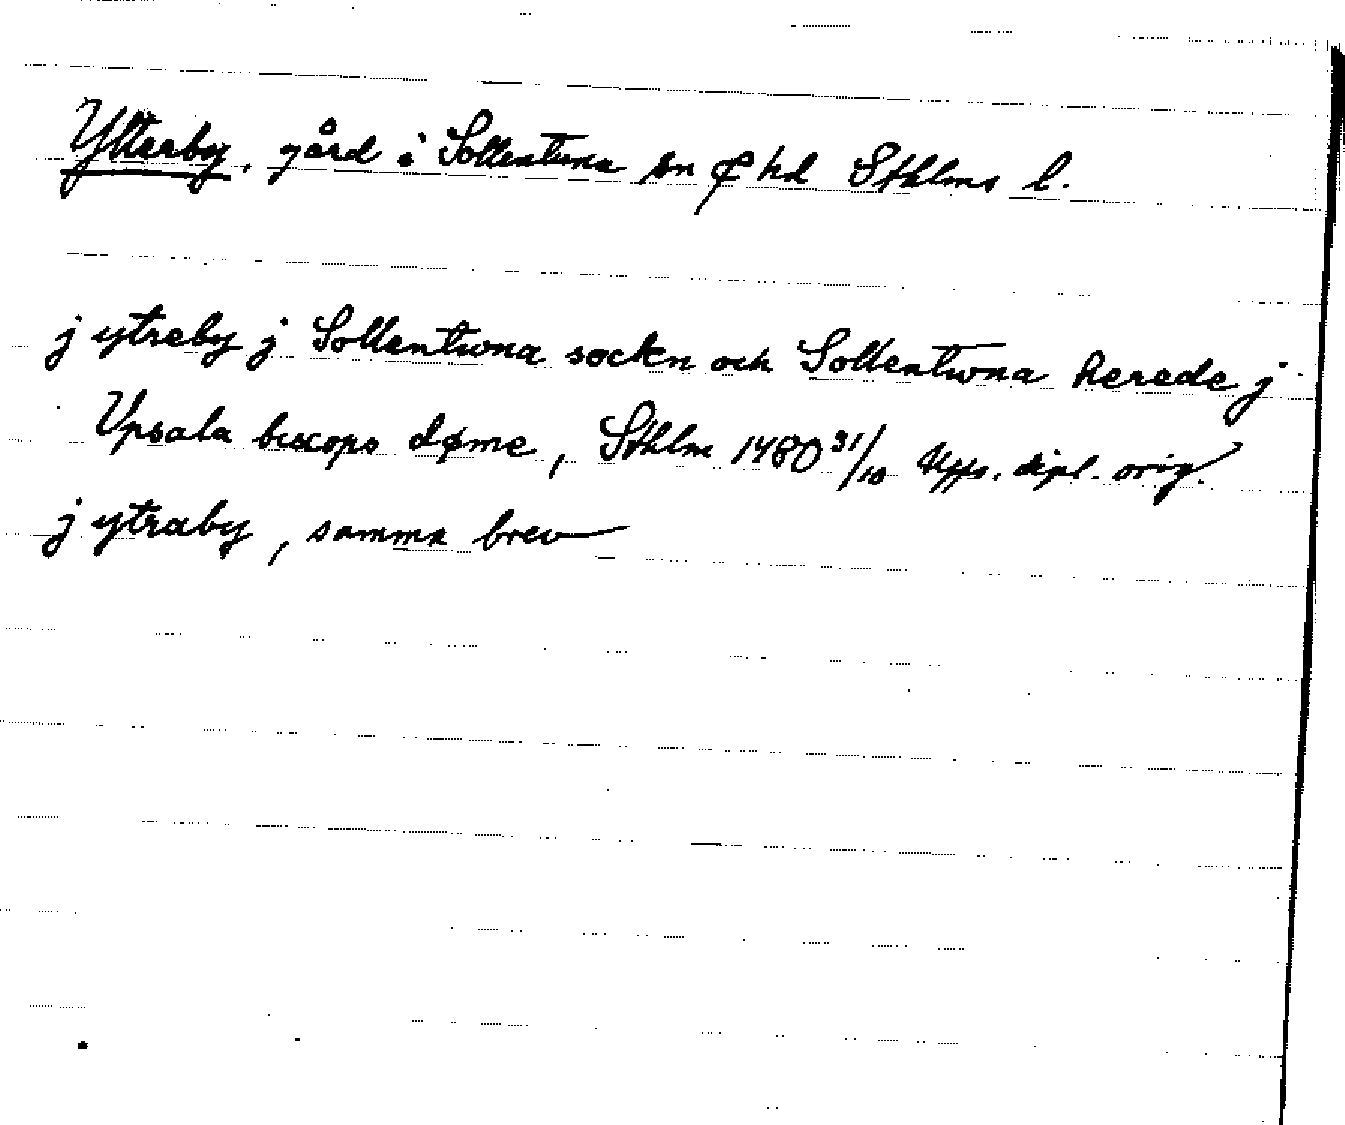 Ytterby, gård i Sollentuna sn & hd Sthlms l.
j ytreby j Sollentwna sockn och Sollentwna herede j
Upsala biscops døme, Sthlm 1480 31/10 Upps. dipl. orig.
j ytraby, samma brev